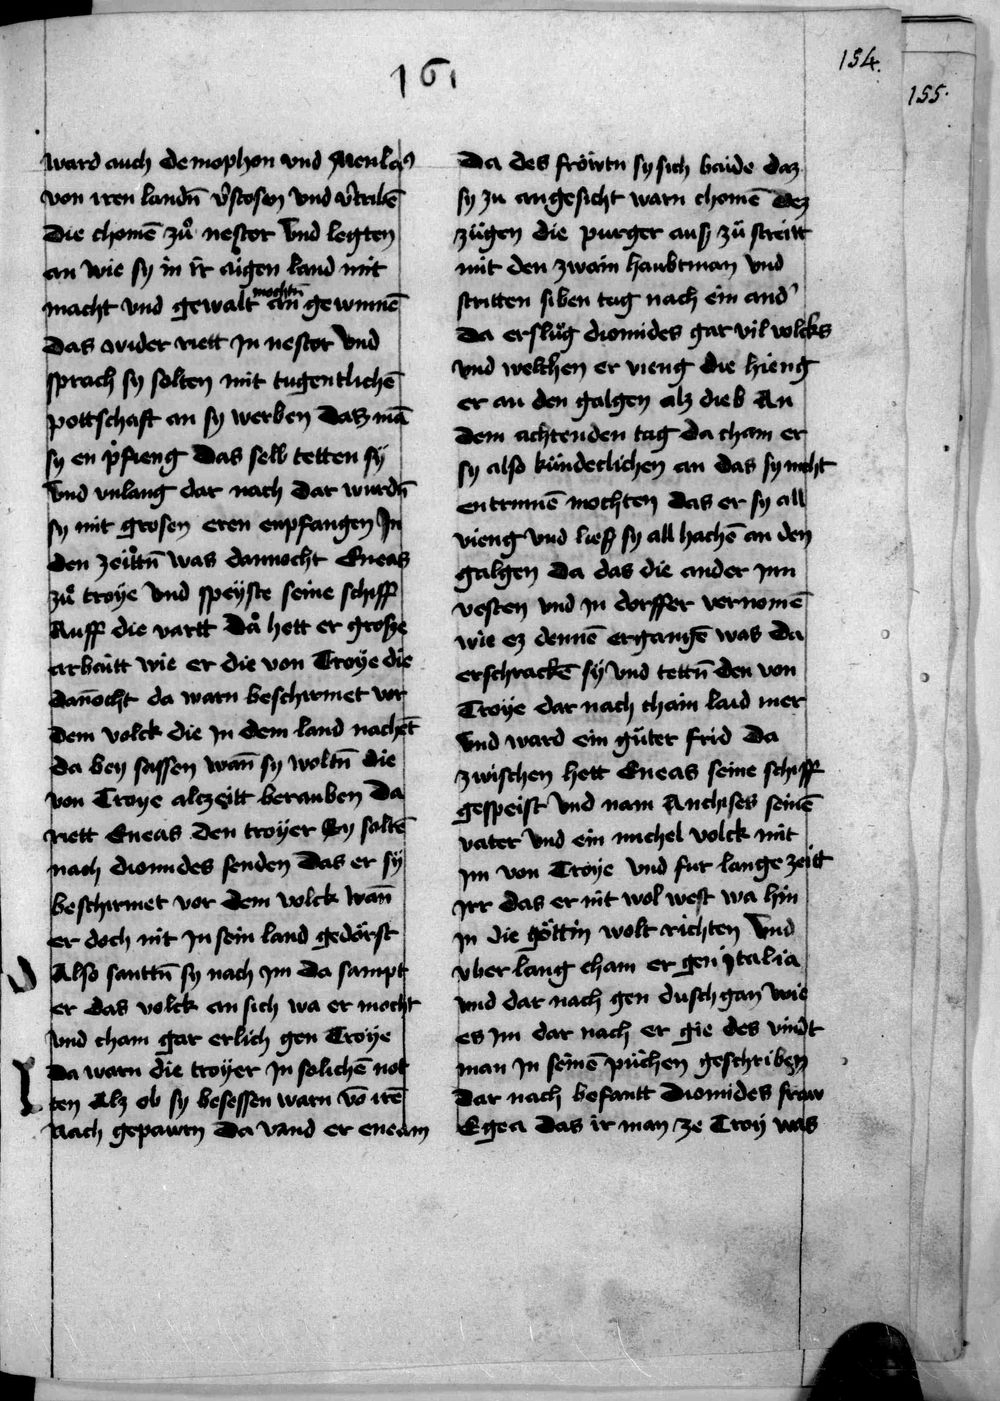 161
154.
155.
ward auch demophon vnd Menlas
von iren landn̄ v̄stosen vnd v̄tribē
die chomē zů nestor Vnd legten
an wie sy in ir aigen land mit
macht vnd gewalt an mochtn̄ gewinnē
das wider riett jn nestor vnd
sprach sy solten mit tugentlichē
pottschaft an sy werben das mā
sy en pfieng Das selb tetten sÿ
vnd vnlang dar nach dar wurdn̄
sy mit grosen eren enpfangen Jn
den zeittn̄ was dannocht Eneas
zů troye vnd speÿste seine schiff
Auff die vartt Da hett er grosze
arbaitt wie er die von Troÿe die
dan̄ocht da warn beschirmet vor
dem volck die jn dem land nachet
da bey sassen wan̄ sy woltn̄ die
von Troye alczeitt berauben Da
riett Eneas den troÿer Sy soltē
nach diomides senden Das er sÿ
beschirmet vor dem volck wan̄
er doch nit jn sein land gedörst
Also santtn̄ sy nach jm da sampt
er das volck an sich wa er mocht
vnd cham gar erlich gen Troÿe
Da warn die troÿer jn solichē not
ten Alz ob sy besessen warn vō irē
Nach gepawrn Da vand er eneam
Da des fröwtn sy sich baide daz
sy zu angesicht warn chomē Dez
zügen die purger ausz zů streitt
mit den zwain haubtman vnd
stritten siben tag nach ein and'
Da erslůg diomides gar vil volcks
vnd welchen er vieng die hieng
er an den galgen alz dieb An
dem achtenden tag da cham er
sy also kündeclichen an das sy nicht
entrinnē mochten das er sy all
vieng vnd liesz sy all hachē an den
galgen da das die ander inn
vesten vnd jn dorffer vernomē
wie ez dennē ergangē was da
erschrackē sÿ vnd tettn̄ den von
Troÿe dar nach chain laid mer
vnd ward ein gůter frid Da
zwischen hett Eneas seine schiff
gespeist vnd nam Anchises seinē
vater vnd ein michel volck mit
jm von Troÿe vnd fur lange zeitt
jrr das er nit wol west wa hin
jn die göttin wolt richten Vnd
vber lang cham er gen jtalia
vnd dar nach gen duschgan wie
es jm dar nach er gie des vindt
man jn seinē püchen geschriben
Dar nach besantt Diomides fraw
Egea das ir man ze Troÿ was